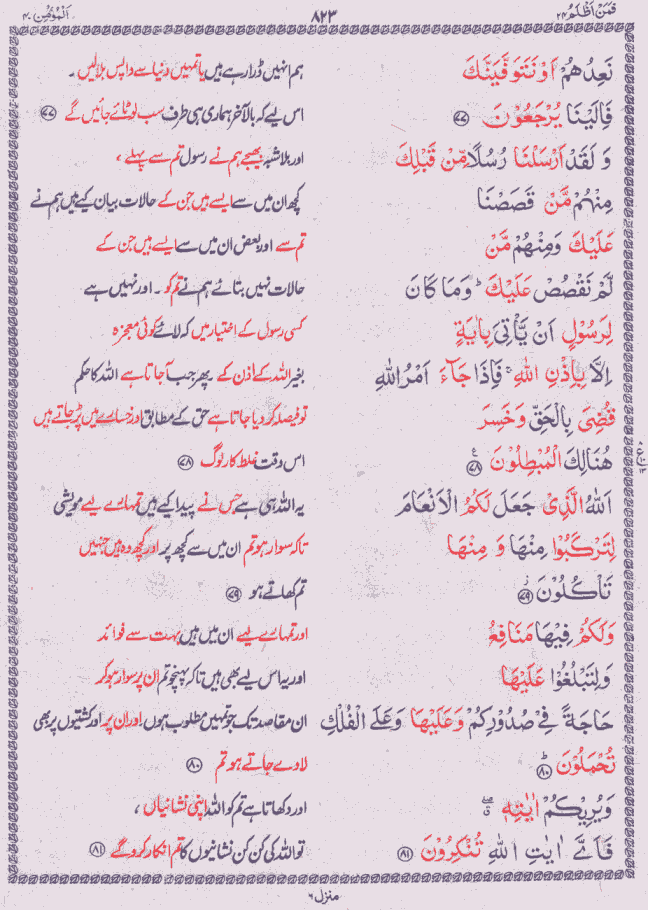 فَمَنْ اَظْلَمُ ۲۴ ۸۲۳ اَلْمُؤْمِن ۴۰
نَعِدُهُمْ اَوْ نَتَوَفَّيَنَّكَ ہم انہیں ڈرا رہے ہیں یا تمہیں دنیا سے واپس بلا لیں ۔
فَاِلَيْنَا يُرْجَعُوْنَ ﴿۷۷﴾ اس لیے کہ بالآخر ہماری ہی طرف سب لوٹائے جائیں گے ﴿۷۷﴾
وَ لَقَدْ اَرْسَلْنَا رُسُلًا مِّنْ قَبْلِكَ اور بلاشبہ بھیجے ہم نے رسول تم سے پہلے ،
مِنْهُمْ مَّنْ قَصَصْنَا کچھ ان میں سے ایسے ہیں جن کے حالات بیان کیے ہیں ہم نے
عَلَيْكَ وَمِنْهُمْ مَّنْ تم سے اور بعض ان میں سے ایسے ہیں جن کے
لَّمْ نَقْصُصْ عَلَيْكَ ؕ وَمَا كَانَ حالات نہیں بتائے ہم نے تم کو ۔ اور نہیں ہے
لِرَسُوْلٍ اَنْ يَّاْتِيَ بِاٰيَةٍ کسی رسول کے اختیار میں کہ لائے کوئی معجزہ
اِلَّا بِاِذْنِ اللّٰهِ ۚ فَاِذَا جَآءَ اَمْرُ اللّٰهِ بغیر اللہ کے اذن کے پھر جب آ جاتا ہے اللہ کا حکم
قُضِيَ بِالْحَقِّ وَخَسِرَ تو فیصلہ کر دیا جاتا ہے حق کے مطابق اور خسارے میں پڑ جاتے ہیں
هُنَالِكَ الْمُبْطِلُوْنَ ﴿۷۸﴾ اس وقت غلط کار لوگ ﴿۷۸﴾
اَللّٰهُ الَّذِيْ جَعَلَ لَكُمُ الْاَنْعَامَ یہ اللہ ہی ہے جس نے پیدا کیے ہیں تمہارے لیے مویشی
لِتَرْكَبُوْا مِنْهَا وَ مِنْهَا تاکہ سوار ہو تم ان میں سے کچھ پر اور کچھ وہ ہیں جنہیں
تَاْكُلُوْنَ ﴿۷۹﴾ تم کھاتے ہو ﴿۷۹﴾
وَلَكُمْ فِيْهَا مَنَافِعُ اور تمہارے لیے ان میں ہیں بہت سے فوائد
وَلِتَبْلُغُوْا عَلَيْهَا اور یہ اس لیے بھی ہیں تاکہ پہنچو تم ان پر سوار ہو کر
حَاجَةً فِيْ صُدُوْرِكُمْ وَعَلَيْهَا وَعَلَى الْفُلْكِ ان مقاصد تک جو تمہیں مطلوب ہوں اور ان پر اور کشتیوں پر بھی
تُحْمَلُوْنَ ﴿۸۰﴾ لادے جاتے ہو تم ﴿۸۰﴾
وَيُرِيْكُمْ اٰيٰتِهٖ اور دکھاتا ہے تم کو اللہ اپنی نشانیاں ،
فَاَيَّ اٰيٰتِ اللّٰهِ تُنْكِرُوْنَ ﴿۸۱﴾ تو اللہ کی کن کن نشانیوں کا تم انکار کرو گے ﴿۸۱﴾
منزل ۶